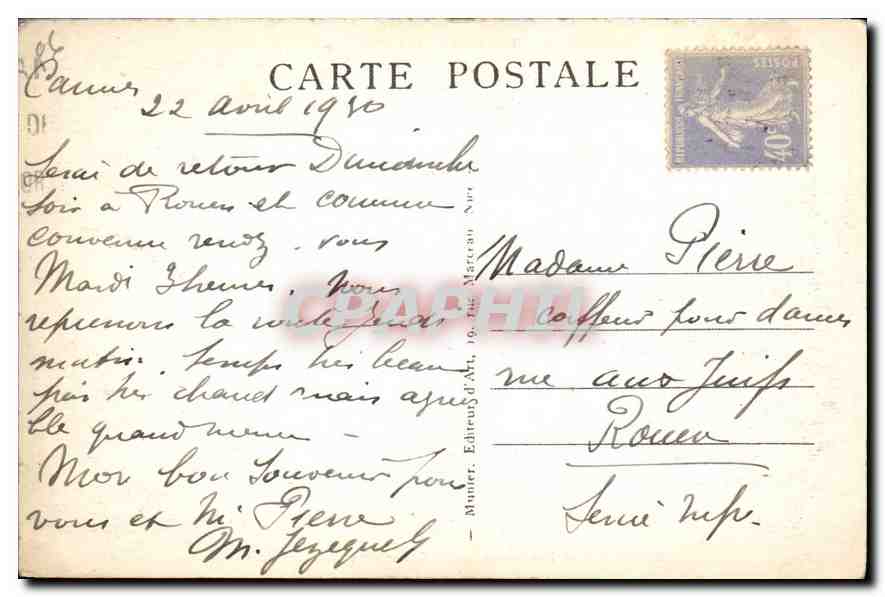 CARTE POSTALE
Cannes
22 Avril 1930
Serai de retour Dimanche
soir à Rouen et comme
convenu rendez-vous
Mardi 3 heures. Nous
reprenons la route Jeudi
matin. Temps très beau
pas très chaud mais agréa
ble quand même -
Mon bon souvenir pour
vous et Mr Pierre
M. Jezequel
Munier, Editeur d'Art, 19, rue Marceau Nice
REPUBLIQUE FRANÇAISE
POSTES
40c
Madame Pierre
coiffeur pour dames
rue aux Juifs
Rouen
Seine Infre
CPAPHIL